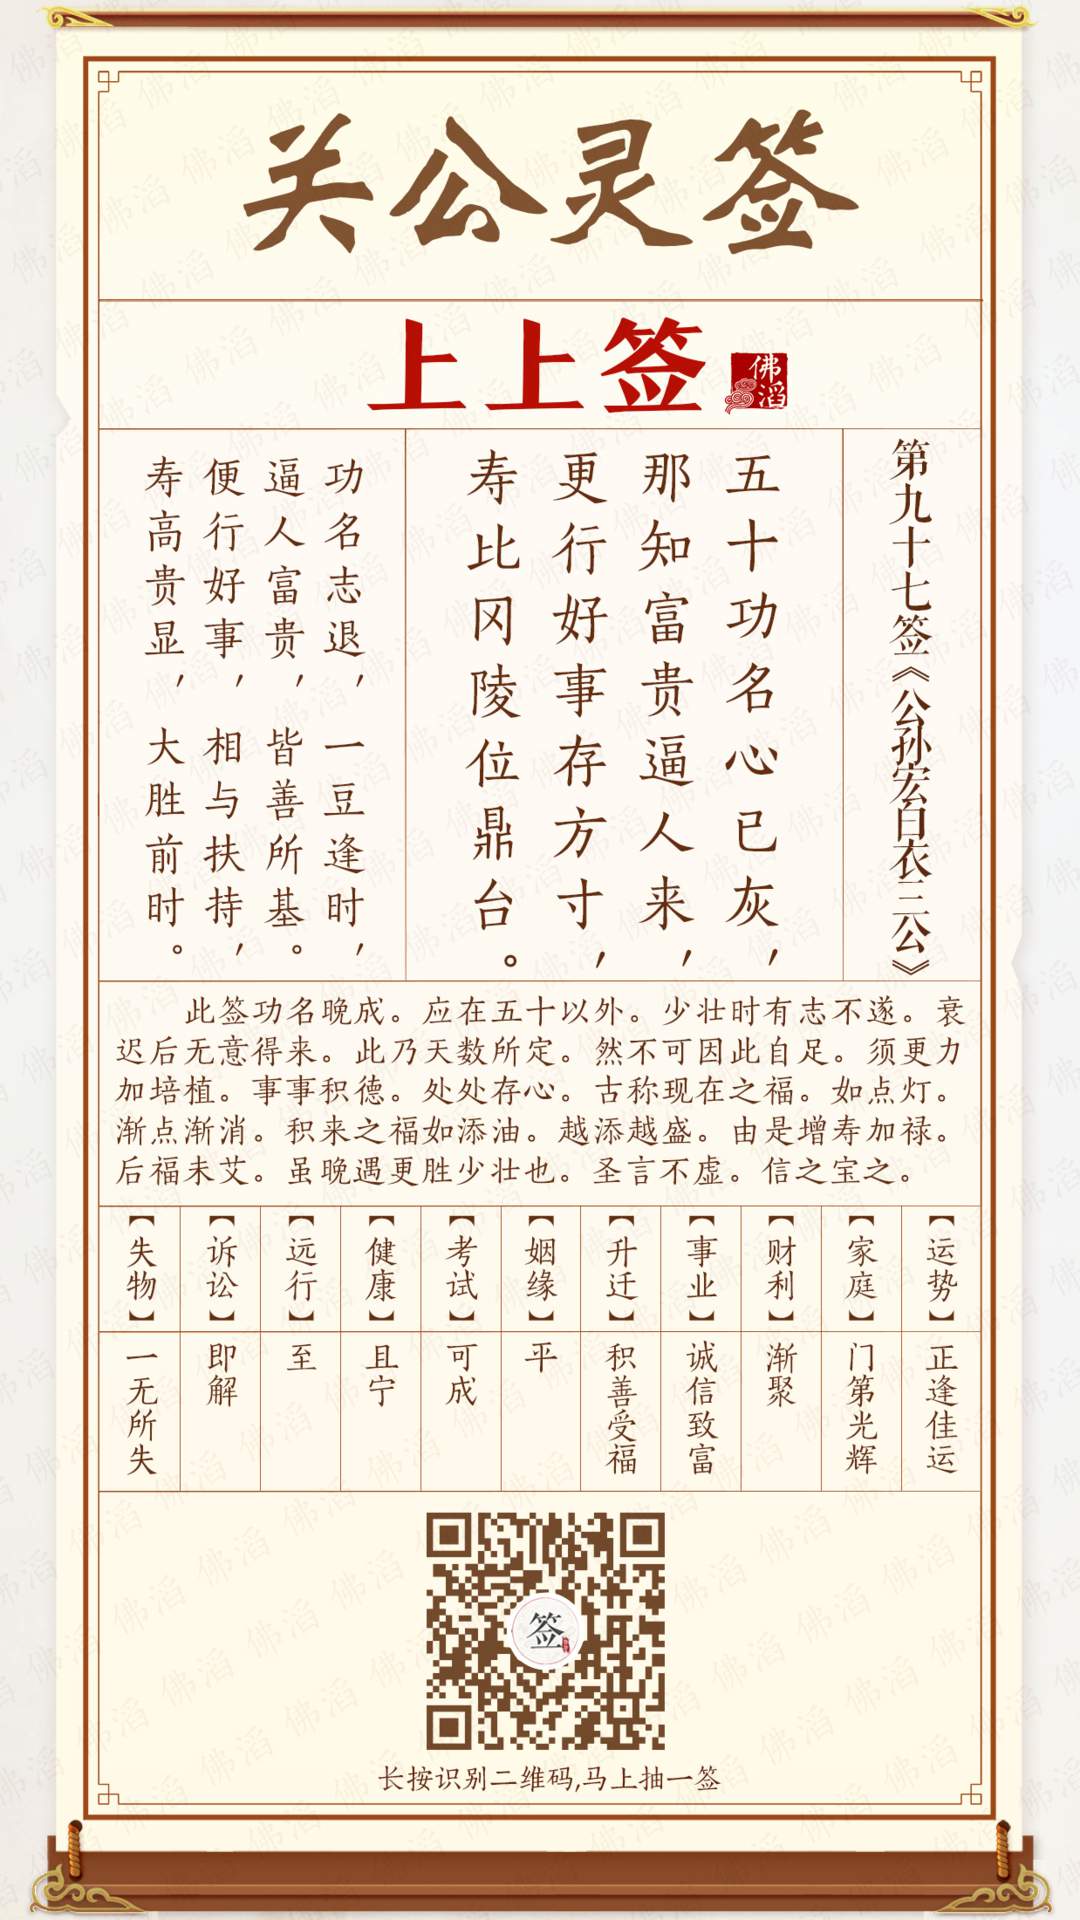 关公灵签
上上签
佛滔
第九十七签《公孙宏白衣三公》
五十功名心已灰，
那知富贵逼人来，
更行好事存方寸，
寿比冈陵位鼎台。
功名志退，一豆逢时，
逼人富贵，皆善所基。
便行好事，相与扶持，
寿高贵显，大胜前时。
此签功名晚成。应在五十以外。少壮时有志不遂。衰
迟后无意得来。此乃天数所定。然不可因此自足。须更力
加培植。事事积德。处处存心。古称现在之福。如点灯。
渐点渐消。积来之福如添油。越添越盛。由是增寿加禄。
后福未艾。虽晚遇更胜少壮也。圣言不虚。信之宝之。
【运势】
正逢佳运
【家庭】
门第光辉
【财利】
渐聚
【事业】
诚信致富
【升迁】
积善受福
【姻缘】
平
【考试】
可成
【健康】
且宁
【远行】
至
【诉讼】
即解
【失物】
一无所失
签
长按识别二维码,马上抽一签